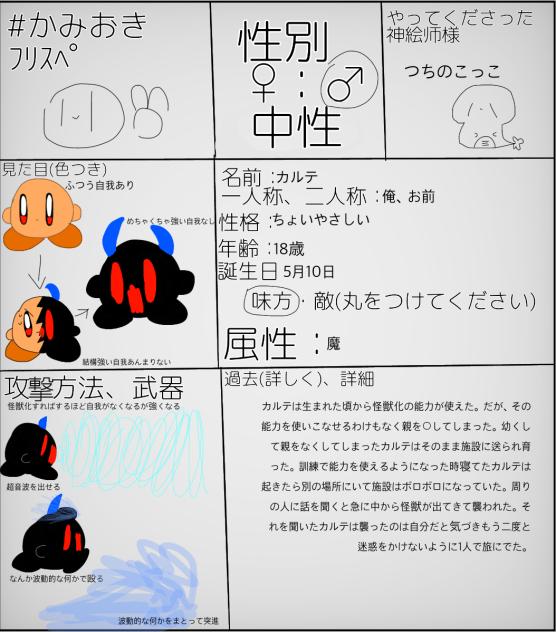 #かみおき
フリスペ
性別
♀:♂
中性
やってくださった
神絵师様
つちのこっこ
見た目(色つき)
ふつう自我あり
めちゃくちゃ強い自我なし
結構強い自我あんまりない
名前:カルテ
一人称、二人称:俺、お前
性格:ちょいやさしい
年齢:18歳
誕生日 5月10日
味方・敵(丸をつけてください)
属性:魔
攻撃方法、武器
怪獣化すればするほど自我がなくなるが強くなる
超音波を出せる
なんか波動的な何かで殴る
波動的な何かをまとって突進
過去(詳しく)、詳細
カルテは生まれた頃から怪獣化の能力が使えた。だが、その
能力を使いこなせるわけもなく親を○してしまった。幼くし
て親をなくしてしまったカルテはそのまま施設に送られ育
った。訓練で能力を使えるようになった時寝てたカルテは
起きたら別の場所にいて施設はボロボロになっていた。周り
の人に話を聞くと急に中から怪獣が出てきて襲われた。そ
れを聞いたカルテは襲ったのは自分だと気づきもう二度と
迷惑をかけないように1人で旅にでた。